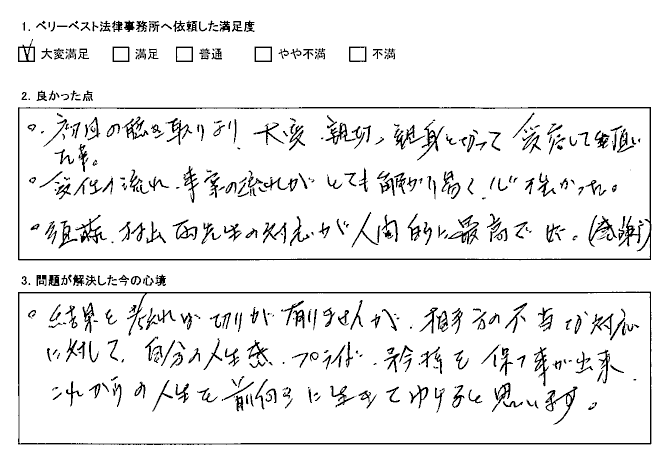 1. ベリーベスト法律事務所へ依頼した満足度
大変満足 満足 普通 やや不満 不満
2. 良かった点
。初回の聴き取りより、大変、親切、親身となって受答して頂い
た事。
。受任の流れ、事案の流れがとても解かり易く、心強かった。
。須藤、村上両先生の対応が人間的に最高でした。(感謝)
3. 問題が解決した今の心境
。結果を考えれば切りが有りませんが、相手方の不当な対応
に対して、自分の人生感、プライド、矜持を保つ事が出来、
これからの人生を前向きに生きてゆけると思います。